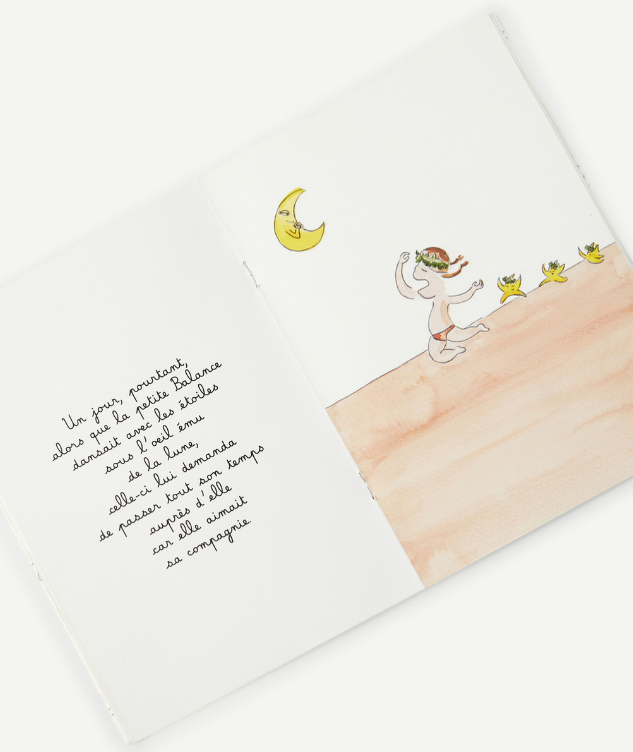 Un jour, pourtant,
alors que la petite Balance
dansait avec les étoiles
sous l'oeil ému
de la lune,
celle-ci lui demanda
de passer tout son temps
auprès d'elle
car elle aimait
sa compagnie.